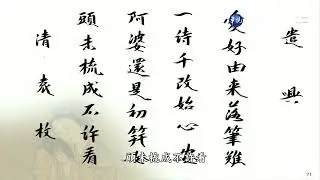 遣興
愛好由来落筆難
一诗千改始心安
阿婆還是初笄女
頭未梳成不許看
清袁枚
頭未梳成不許看
21